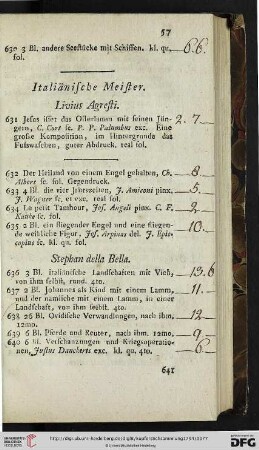 57
630 3 Bl. andere Seestücke mit Schiffen. kl. qu. 6.6.
fol.
Italiänische Meister.
Livius Agresti.
631 Jesus isset das Osterlamm mit seinen Jün- 2.7
gern, C. Cort sc. P. P. Palumbus exc. Eine
große Komposition, im Hintergrunde das
Fußwaschen, guter Abdruck. real fol.
632 Der Heiland von einem Engel gehalten, Ch. 8
Albert sc. fol. Gegendruck.
633 4 Bl. die vier Jahrszeiten, J. Amiconi pinx. 5
J. Wagner sc. et exc. real fol.
634 Le petit Tambour, Jos. Angeli pinx. C. F. 2
sc. fol.
635 2 Bl. ein fliegender Engel und eine fliegen- 10.
de weibliche Figur, Jos. Arpinas del. J. Epis-
copius sc. kl. qu. fol.
Stephan della Bella.
636 3 Bl. italiänische Landschaften mit Vieh, 13.6
von ihm selbst, rund. 4to.
637 2 Bl. Johannes als Kind mit einem Lamm, 11.
und der nämliche mit einem Lamm, in einer
Landschaft, von ihm selbst. 4to.
638 26 Bl. Ovidische Verwandlungen, nach ihm. 12
12mo.
639 6 Bl. Pferde und Reuter, nach ihm. 12mo. 9
640 6 Bl. Verschanzungen und Kriegsoperatio-
nen, Justus Danckerts exc. kl. qu. 4to. 6
641
http://digi.ub.uni-heidelberg.de/diglit/
Universitätsbibliothek Heidelberg
gefördert durch die
DFG